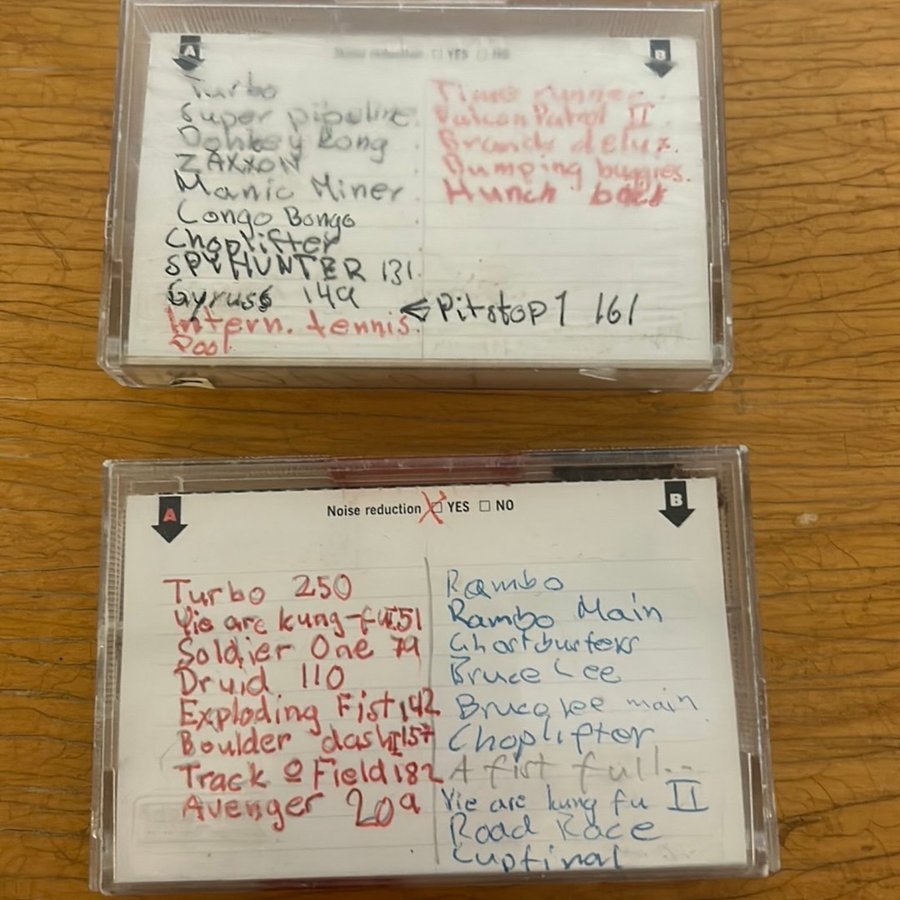 A
Noise reduction YES NO
B
Turbo
Super pipeline
Donkey Kong
ZAXXON
Manic Miner
Congo Bongo
Choplifter
SPYHUNTER 131
Gyruss 149
Intern. tennis
Pool
Time runner
Vulcan Patrol II
Brands delux.
Bumping buggies.
Hunch back
<Pitstop 1 161
A
Noise reduction YES NO
B
Turbo 250
Yie are kung-fu I 51
Soldier One 79
Druid 110
Exploding Fist 142
Boulder dash I 157
Track o Field 182
Avenger 209
Rambo
Rambo Main
Ghostbusters
Bruce Lee
Bruce lee main
Choplifter
A fist full..
Yie are kung fu II
Road Race
Cupfinal